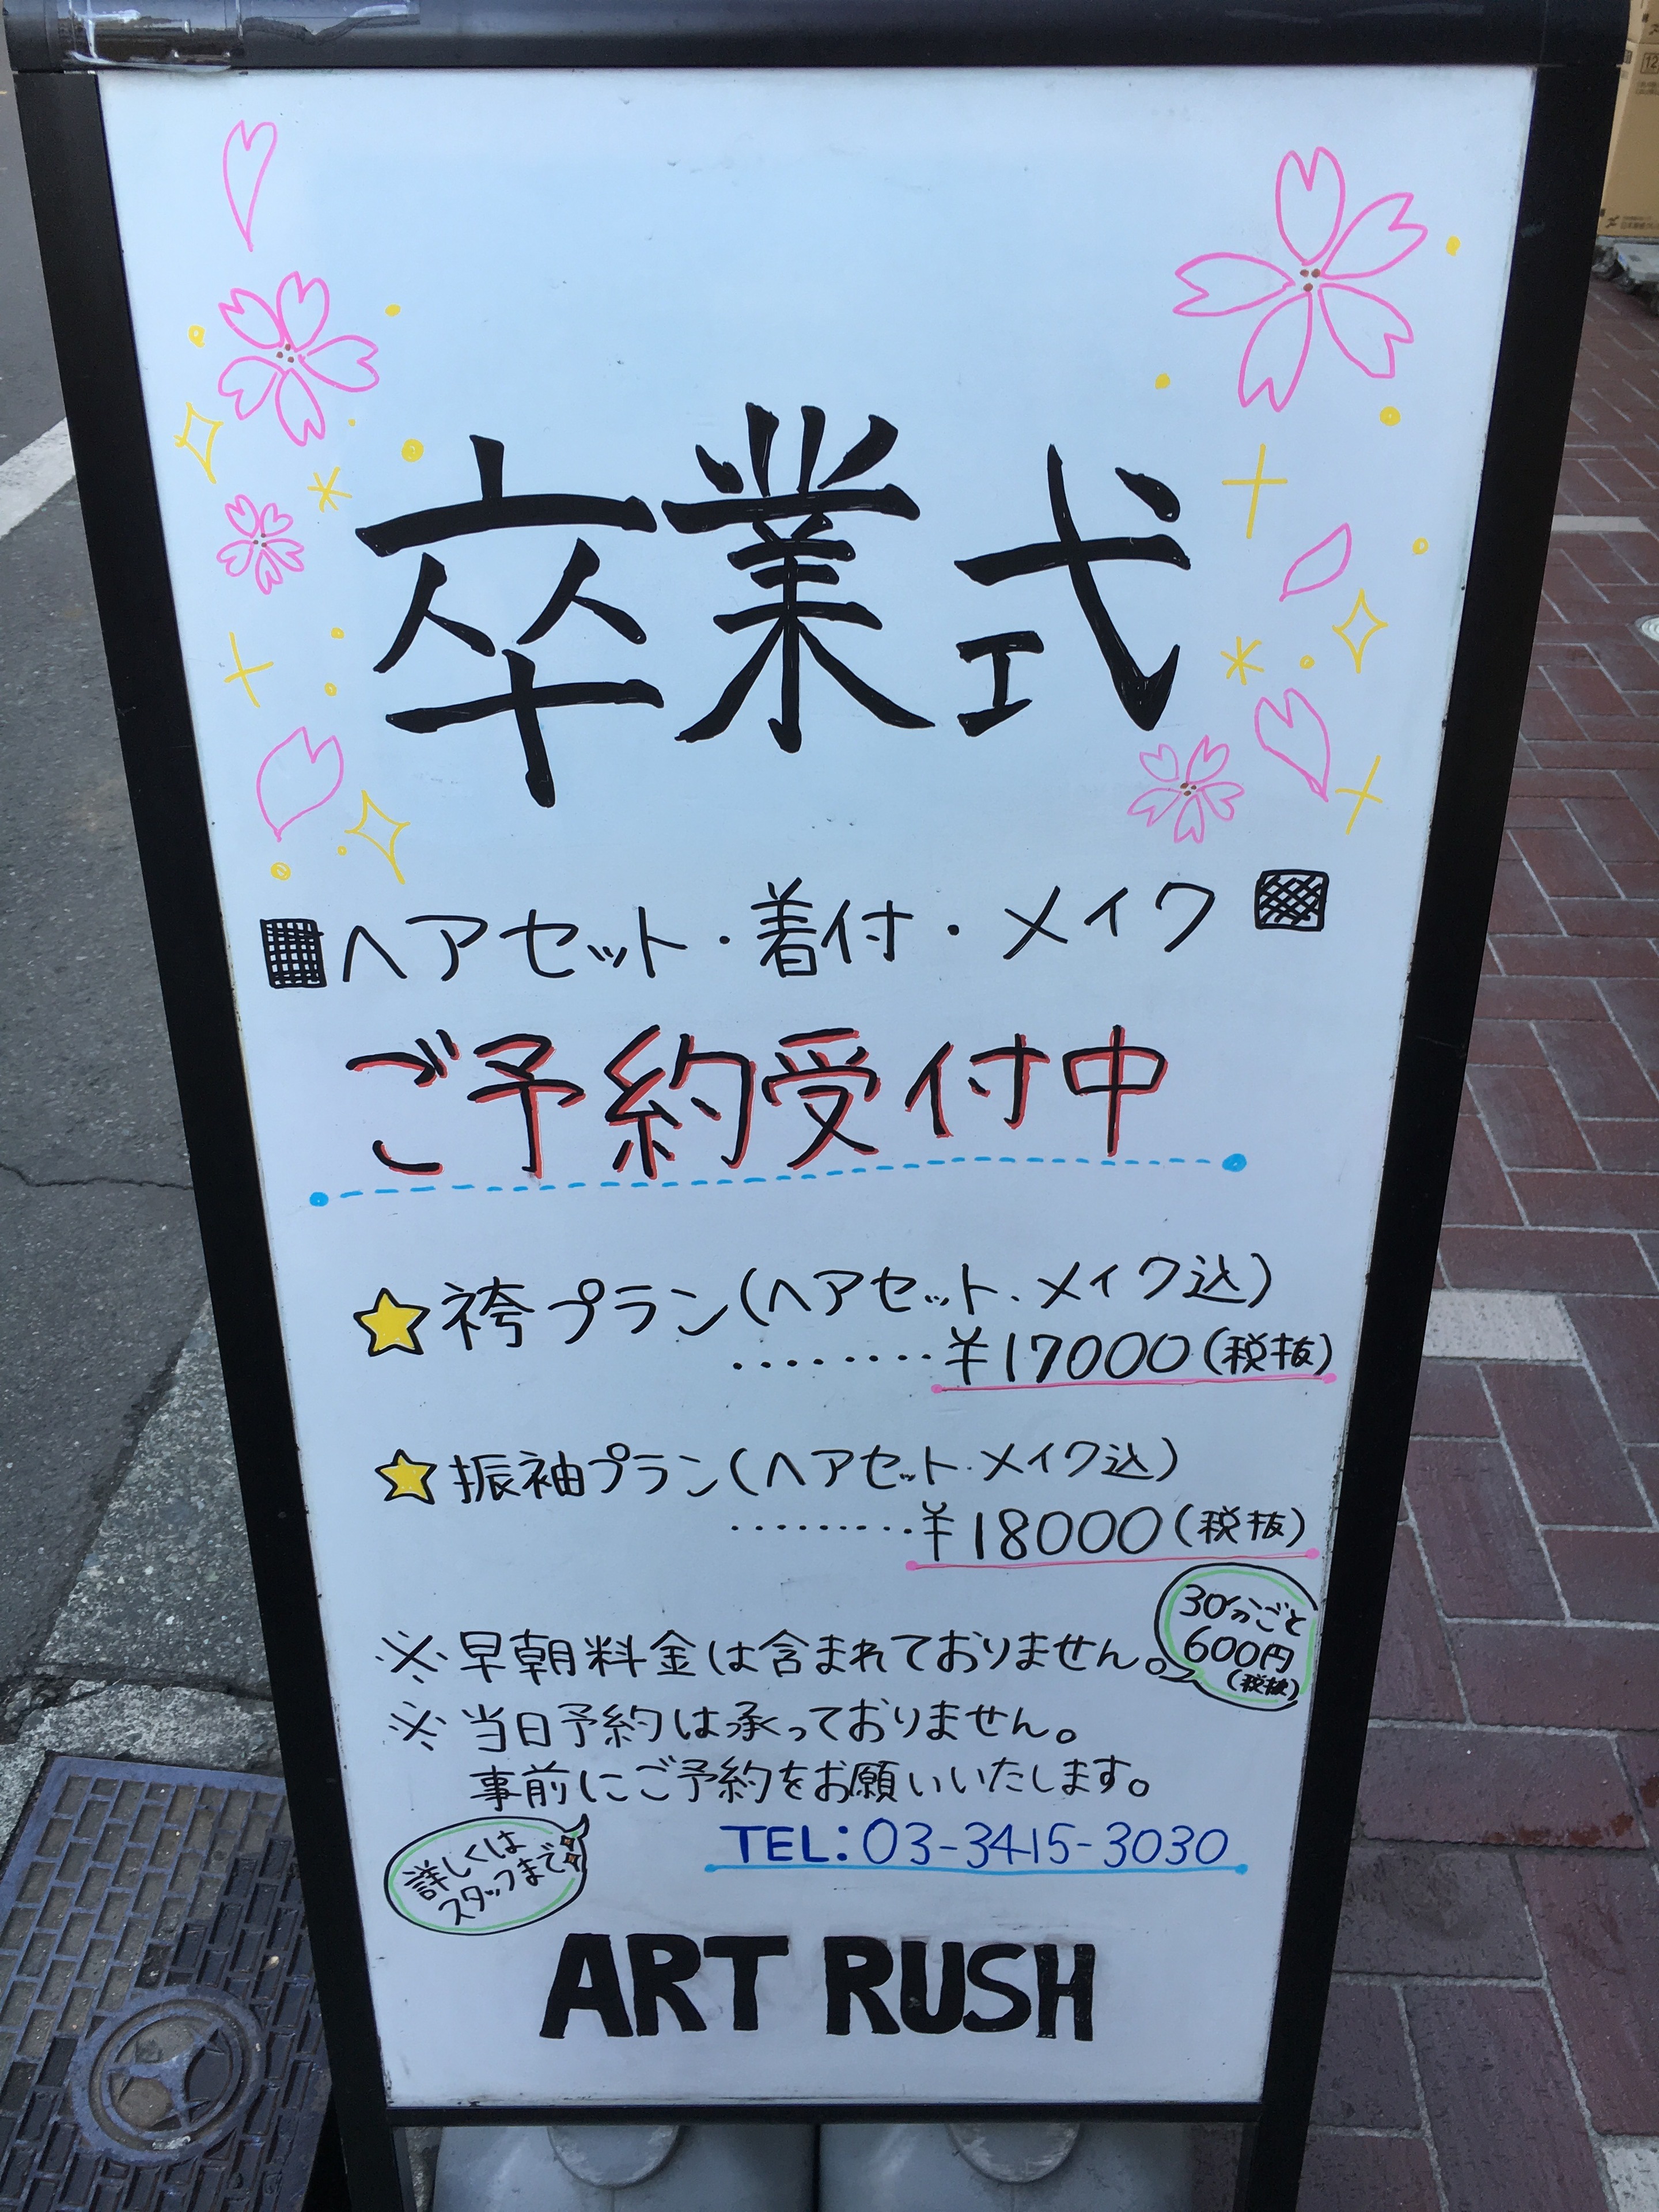 卒業式
ヘアセット・着付・メイク
ご予約受付中
★袴プラン(ヘアセット・メイク込)
‥‥‥‥¥17000(税抜)
★振袖プラン(ヘアセット・メイク込)
‥‥‥‥¥18000(税抜)
※早朝料金は含まれておりません。
30分ごと
600円
(税抜)
※当日予約は承っておりません。
事前にご予約をお願いいたします。
詳しくは
スタッフまで
TEL:03-3415-3030
ART RUSH